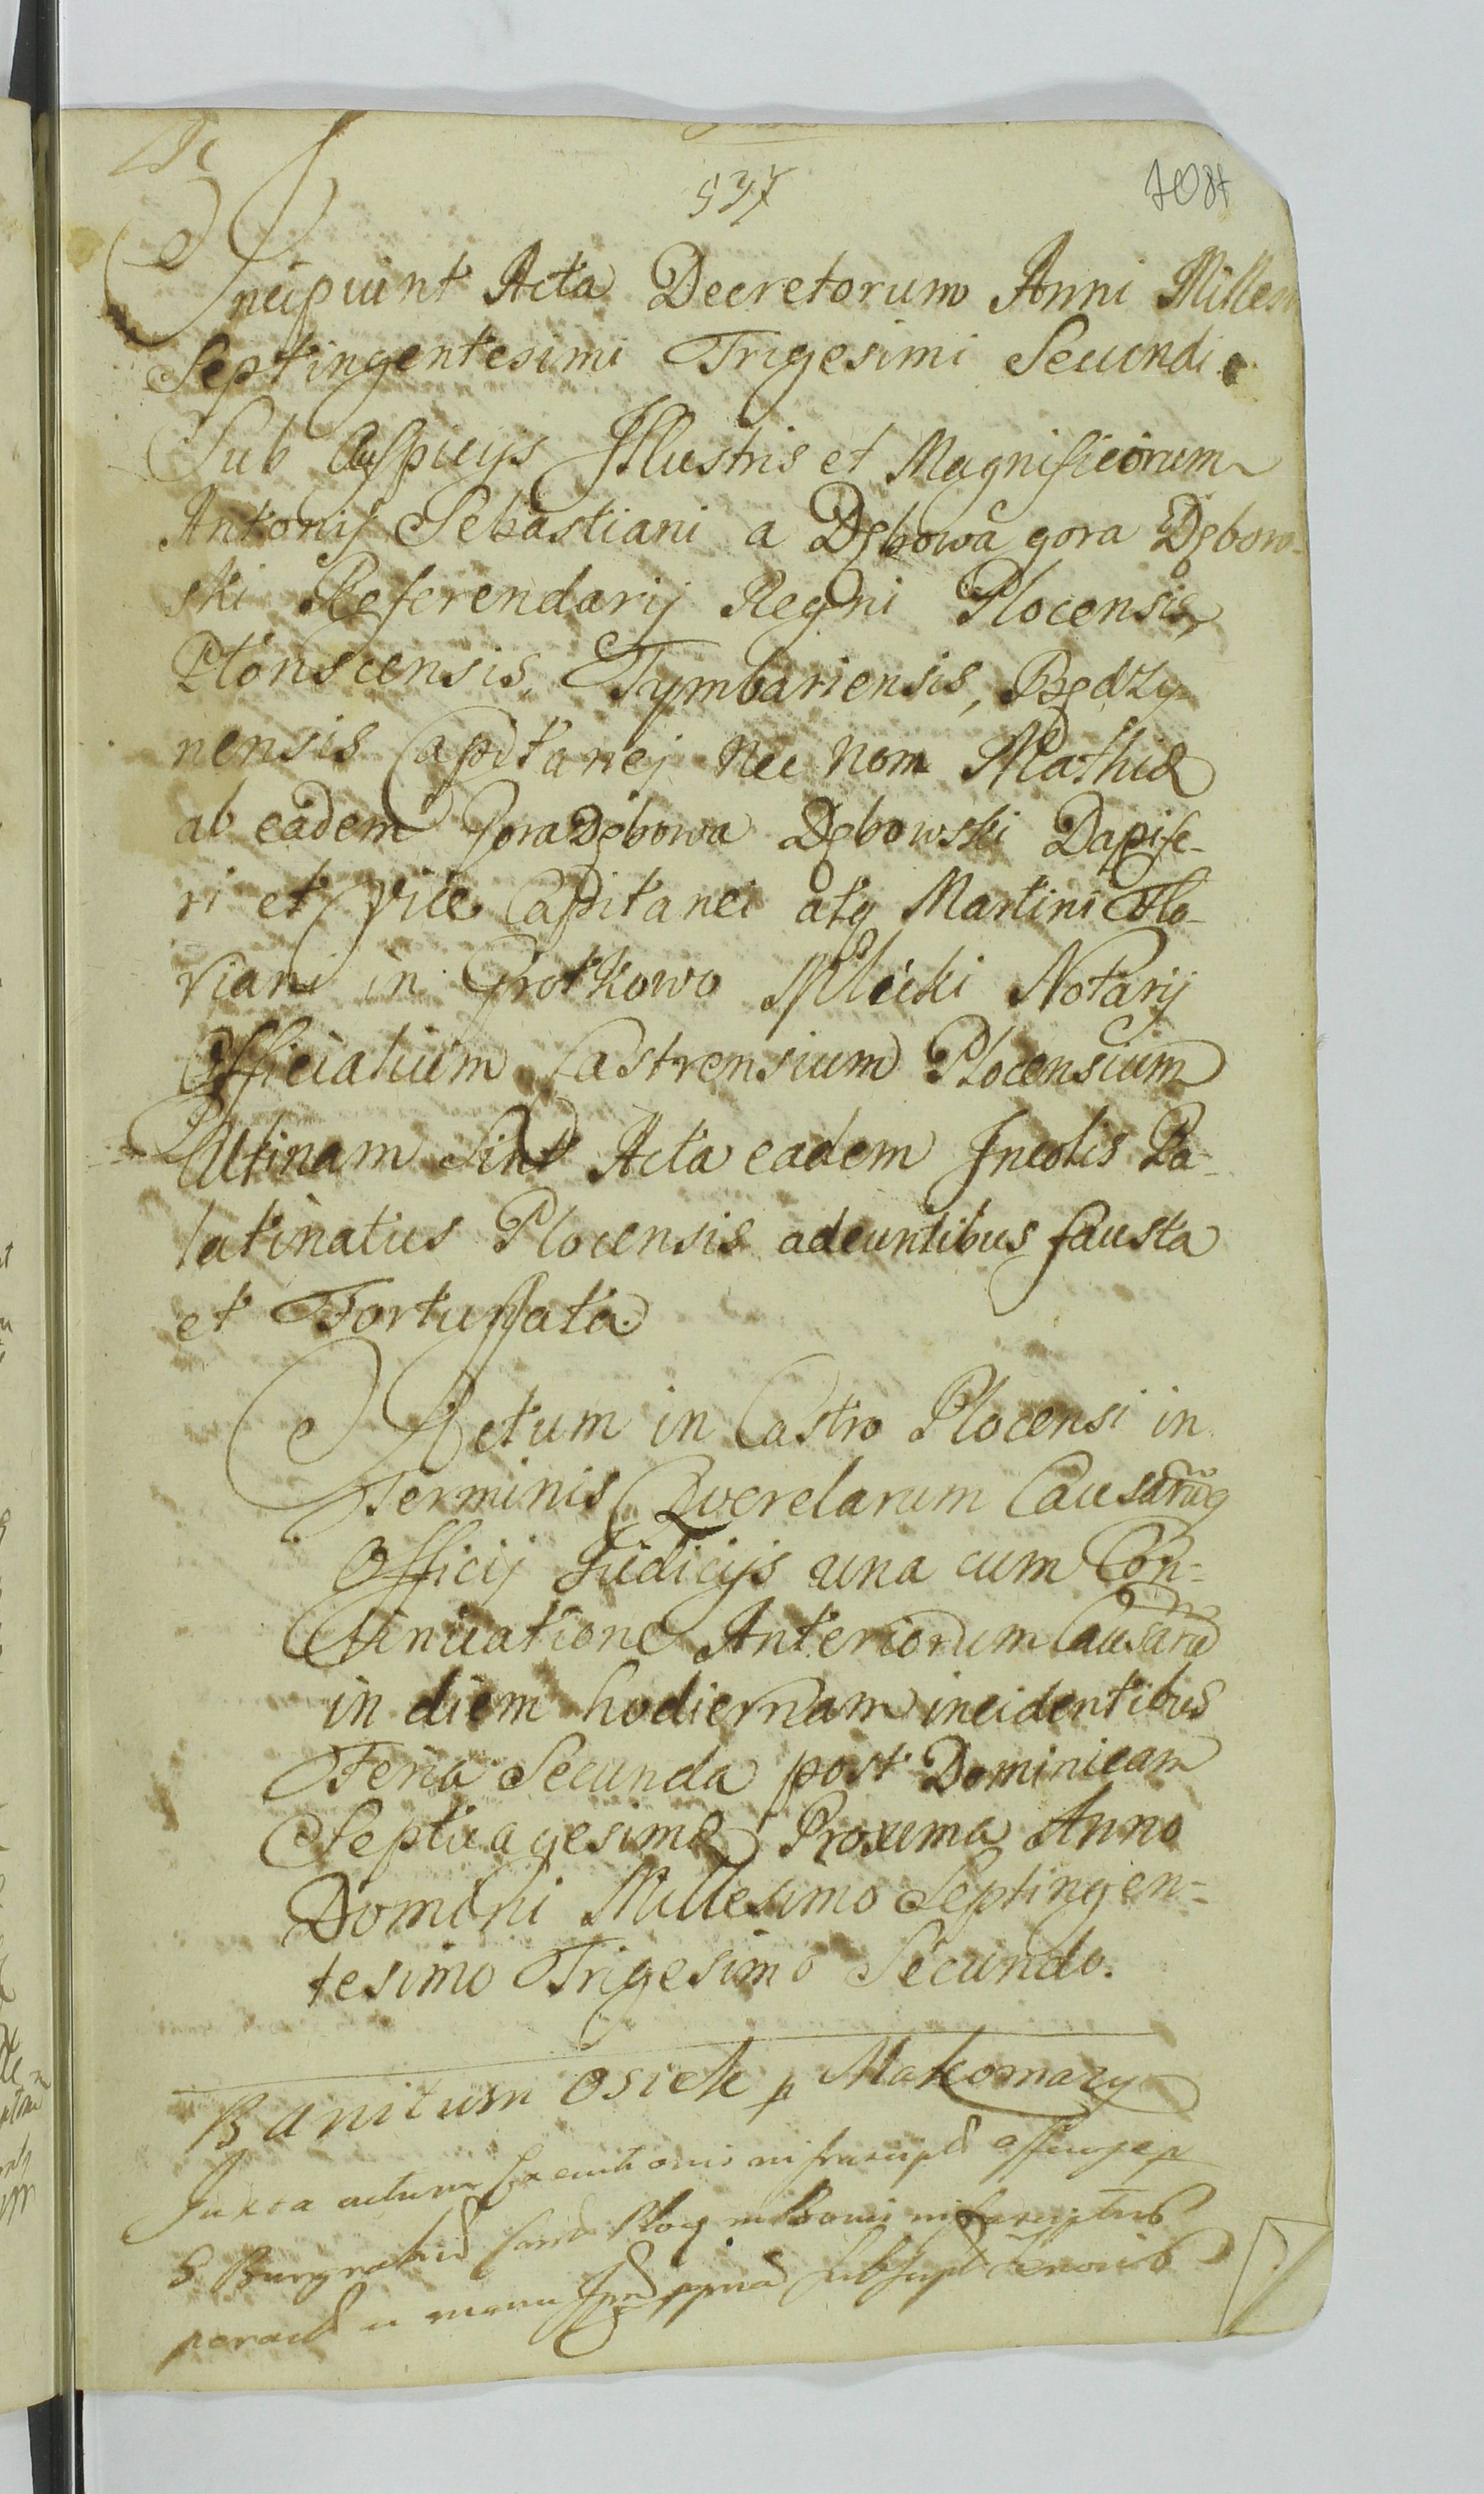 537
1087
Incipiunt Acta Decretorum Anni Millesi
Septingentesimi Trigesimi Secundi.
Sub Auspicijs Jllustris et Magnificorum
Antonij Sebastiani a Dębowa gora Dębow-
ski Referendarij Regni Plocensis,
Płonscensis, Tymbariensis, Będzy-
nensis Capitanej Nec Non Mathiæ
ab eadem Gora Dębowa Dębowski Dapife-
ri et Vice Capitanei atq Martini Flo-
riani in Grotkowo Mlicki Notarij
Officialium Castrensium Plocensium
Utinam Sint Acta eadem Jncolis Pa-
latinatus Plocensis adeuntibus fausta
et Fortunata.
Actum in Castro Plocensi in
Terminis Qverelarum Causarūq
Officij Judicijs una cum Con=
tinuatione Anteriorum Causarū
in diem hodiernam incidentibus
Feria Secunda post Dominicam
Septuagesimæ Proxima Anno
Domini Millesimo Septingen=
tesimo Trigesimo Secundo.
Banitum Osiek p Makomazy
Juxta actum Executionis
G Burgrabiū Cast Ploc in Bonis
manu